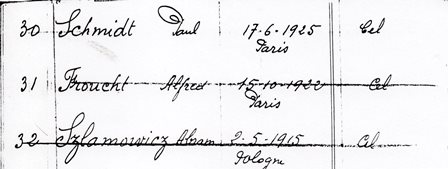 30 Schmidt Paul 17-6-1925 Cel
Paris
31 Froucht Alfred 15-10-1922 Cel
Paris
32 Szlamowicz Abram 2-5-1915 Cel
Pologne